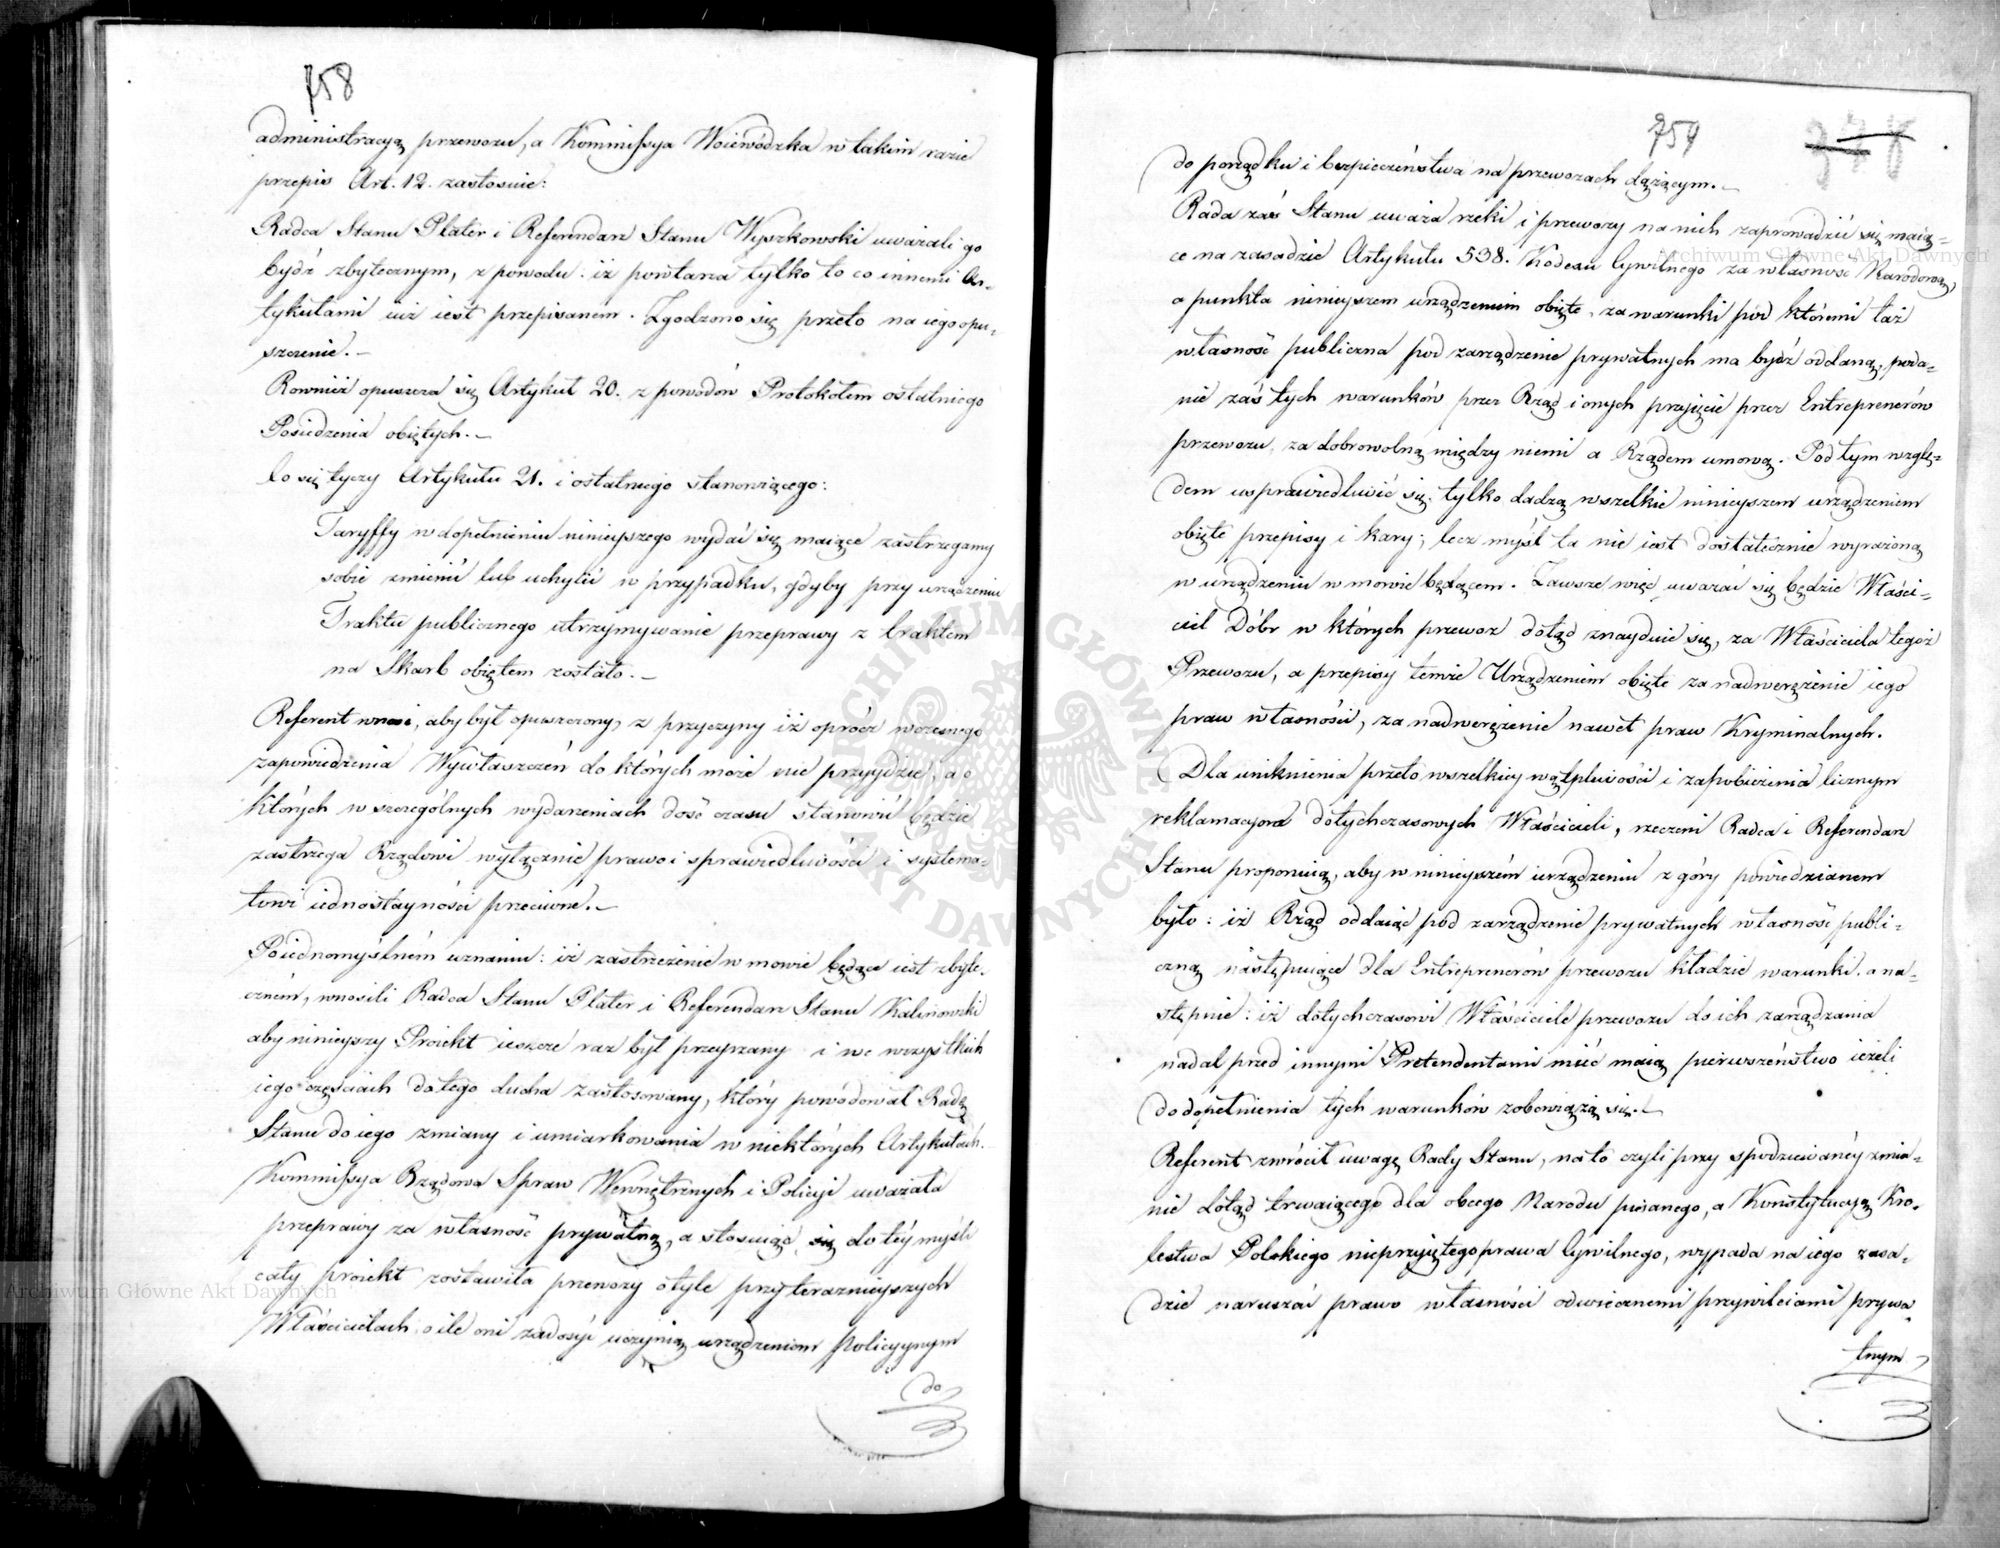 758
administracyą przewozu, a Kommissya Woiewódzka w takim razie
przepis Art. 12. zastosuie:
Radca Stanu Plater i Referendarz Stanu Wyszkowski uważali go
bydź zbytecznym, z powodu: iż powtarza tylko to co innemi Ar-
tykułami iuż iest przepisanem. Zgodzono się przeto na iego opu-
szczenie.–
Rownież opuszcza się Artykuł 20. z powodów Protokołem ostatniego
Posiedzenia obiętych.–
Co się tyczy Artykułu 21. i ostatniego stanowiącego:
Taryffy w dopełnieniu ninieyszego wydać się maiące zastrzegamy
sobie zmienić lub uchylić w przypadku, gdyby przy urządzeniu
Traktu publicznego utrzymywanie przeprawy z traktem
na Skarb obiętem zostało.–
Referent wnosi, aby był opuszczony, z przyczyny iż oprócz wczesnego
zapowiedzenia Wywłaszczeń do których może nie przyydzie, a o
których w szczególnych wydarzeniach dość czasu stanowić będzie
zastrzega Rządowi wyłącznie prawo i sprawiedliwości i systema-
towi iednostayności przeciwne.–
Po iednomyślném uznaniu: iż zastrzeżenie w mowie będące iest zbyte-
czném, wnosili Radca Stanu Plater i Referendarz Stanu Kalinowski
aby ninieyszy Proiekt ieszcze raz był przeyrzany i we wszystkich
iego częściach do tego ducha zastosowany, który powodował Radę
Stanu do iego zmiany i umiarkowania w niektórych Artykułach.
Kommissya Rządowa Spraw Wewnętrznych i Policyi uważała
przeprawy za własność prywatną, a stosuiąc się do téy myśli
cały proiekt zostawiła przewozy o tyle przy teraznieyszych
Właścicielach o ile oni zadosyć uczynią urządzeniom policyynym
do
754
do porządku i bezpieczeństwa na przewozach dążącym.–
Rada zaś Stanu uważa rzeki i przewozy na nich zaprowadzić się maią-
ce na zasadzie Artykułu 538. Kodexu Cywilnego za własność Narodową,
a punkta ninieyszem urządzeniem obięte, za warunki pod któremi taż
własność publiczna pod zarządzenie prywatnych ma bydź oddaną, poda-
nie zaś tych warunków przez Rząd i onych przyięcie przez Entreprenerów
przewozu, za dobrowolną między niemi a Rządem umową. Pod tym wzglę-
dem usprawiedliwić się tylko dadzą wszelkie ninieyszem urządzeniem
obięte przepisy i kary; lecz myśl ta nie iest dostatecznie wyrażoną
w urządzeniu w mowie będącem. Zawsze więc uważać się będzie Właści-
ciel Dóbr w których przewoz dotąd znayduie się, za Właściciela tegoż
Przewozu, a przepisy temże Urządzeniem obięte za nadwerężenie iego
praw własności, za nadwerężenie nawet praw Kryminalnych.
Dla uniknienia przeto wszelkiey wątpliwości i zapobieżenia licznym
reklamacyom dotychczasowych Właścicieli, rzeczeni Radca i Referendarz
Stanu proponuią, aby w ninieyszém urządzeniu z góry powiedzianem
było: iż Rząd oddaiąc pod zarządzenie prywatnych własność publi-
czną następuiące dla Entreprenerów przewozu kładzie warunki, a na-
stępnie: iż dotychczasowi Właściciele przewozu do ich zarządzania
nadal przed innymi Pretendentami mieć maią pierwszeństwo ieżeli
do dopełnienia tych warunków zobowiążą się.–
Referent zwrócił uwagę Rady Stanu, na to czyli przy spodziewanéy zmia-
nie dotąd trwaiącego dla obcego Narodu pisanego, a Konstytucyą Kró-
lestwa Polskiego nieprzyiętego prawa Cywilnego, wypada na iego zasa-
dzie naruszać prawo własności odwiecznemi przywileiami prywa-
tnym
Archiwum Główne Akt Dawnych
Archiwum Główne Akt Dawnych
ARCHIWUM GŁÓWNE AKT DAWNYCH